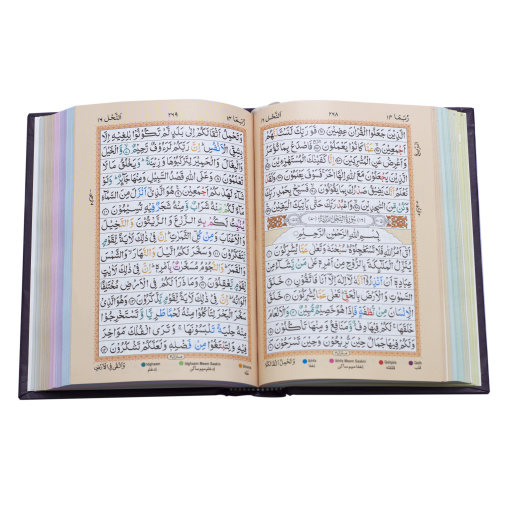 رُبَمَا ١٤ ٢٦٨ اَلنَّحْل ١٦
الَّذِيْنَ جَعَلُوا الْقُرْاٰنَ عِضِيْنَ ۝ فَوَرَبِّكَ لَنَسْـَٔلَنَّهُمْ
اَجْمَعِيْنَ ۝ عَمَّا كَانُوْا يَعْمَلُوْنَ ۝ فَاصْدَعْ بِمَا تُؤْمَرُ
وَاَعْرِضْ عَنِ الْمُشْرِكِيْنَ ۝ اِنَّا كَفَيْنٰكَ الْمُسْتَهْزِءِيْنَ ۝
الَّذِيْنَ يَجْعَلُوْنَ مَعَ اللّٰهِ اِلٰهًا اٰخَرَ فَسَوْفَ يَعْلَمُوْنَ ۝
وَلَقَدْ نَعْلَمُ اَنَّكَ يَضِيْقُ صَدْرُكَ بِمَا يَقُوْلُوْنَ ۝ فَسَبِّحْ بِحَمْدِ
رَبِّكَ وَكُنْ مِّنَ السّٰجِدِيْنَ ۝ وَاعْبُدْ رَبَّكَ حَتّٰى يَاْتِيَكَ الْيَقِيْنُ ۝
بِسْمِ اللّٰهِ الرَّحْمٰنِ الرَّحِيْمِ
اَتٰٓى اَمْرُ اللّٰهِ فَلَا تَسْتَعْجِلُوْهُ سُبْحٰنَهٗ وَتَعٰلٰى عَمَّا يُشْرِكُوْنَ ۝
يُنَزِّلُ الْمَلٰٓئِكَةَ بِالرُّوْحِ مِنْ اَمْرِهٖ عَلٰى مَنْ يَّشَآءُ مِنْ
عِبَادِهٖٓ اَنْ اَنْذِرُوْٓا اَنَّهٗ لَآ اِلٰهَ اِلَّآ اَنَا فَاتَّقُوْنِ ۝ خَلَقَ
السَّمٰوٰتِ وَالْاَرْضَ بِالْحَقِّ تَعٰلٰى عَمَّا يُشْرِكُوْنَ ۝ خَلَقَ
الْاِنْسَانَ مِنْ نُّطْفَةٍ فَاِذَا هُوَ خَصِيْمٌ مُّبِيْنٌ ۝ وَالْاَنْعَامَ
خَلَقَهَا لَكُمْ فِيْهَا دِفْءٌ وَّمَنَافِعُ وَمِنْهَا تَاْكُلُوْنَ ۝
وَلَكُمْ فِيْهَا جَمَالٌ حِيْنَ تُرِيْحُوْنَ وَحِيْنَ تَسْرَحُوْنَ ۝
رُبَمَا ١٤ ٢٦٩ اَلنَّحْل ١٦
وَتَحْمِلُ اَثْقَالَكُمْ اِلٰى بَلَدٍ لَّمْ تَكُوْنُوْا بٰلِغِيْهِ اِلَّا
بِشِقِّ الْاَنْفُسِ اِنَّ رَبَّكُمْ لَرَءُوْفٌ رَّحِيْمٌ ۝ وَّالْخَيْلَ
وَالْبِغَالَ وَالْحَمِيْرَ لِتَرْكَبُوْهَا وَزِيْنَةً وَيَخْلُقُ مَا لَا
تَعْلَمُوْنَ ۝ وَعَلَى اللّٰهِ قَصْدُ السَّبِيْلِ وَمِنْهَا جَآئِرٌ وَلَوْ شَآءَ
لَهَدٰىكُمْ اَجْمَعِيْنَ ۝ هُوَ الَّذِيْٓ اَنْزَلَ مِنَ السَّمَآءِ
مَآءً لَّكُمْ مِّنْهُ شَرَابٌ وَّمِنْهُ شَجَرٌ فِيْهِ تُسِيْمُوْنَ ۝
يُنْۢبِتُ لَكُمْ بِهِ الزَّرْعَ وَالزَّيْتُوْنَ وَالنَّخِيْلَ
وَالْاَعْنَابَ وَمِنْ كُلِّ الثَّمَرٰتِ اِنَّ فِيْ ذٰلِكَ لَاٰيَةً لِّقَوْمٍ
يَّتَفَكَّرُوْنَ ۝ وَسَخَّرَ لَكُمُ الَّيْلَ وَالنَّهَارَ وَالشَّمْسَ
وَالْقَمَرَ وَالنُّجُوْمُ مُسَخَّرٰتٌۢ بِاَمْرِهٖ اِنَّ فِيْ ذٰلِكَ لَاٰيٰتٍ
لِّقَوْمٍ يَّعْقِلُوْنَ ۝ وَمَا ذَرَاَ لَكُمْ فِي الْاَرْضِ مُخْتَلِفًا
اَلْوَانُهٗ اِنَّ فِيْ ذٰلِكَ لَاٰيَةً لِّقَوْمٍ يَّذَّكَّرُوْنَ ۝ وَهُوَ الَّذِيْ
سَخَّرَ الْبَحْرَ لِتَاْكُلُوْا مِنْهُ لَحْمًا طَرِيًّا وَّتَسْتَخْرِجُوْا
مِنْهُ حِلْيَةً تَلْبَسُوْنَهَا وَتَرَى الْفُلْكَ مَوَاخِرَ
فِيْهِ وَلِتَبْتَغُوْا مِنْ فَضْلِهٖ وَلَعَلَّكُمْ تَشْكُرُوْنَ ۝